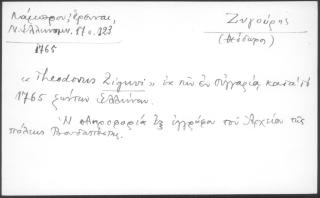 Λάμπρου, Ἔρευναι,
Ν. Ἑλλήνομν. 17ος. 123
1765
Ζιγούρης
(Θεόδωρος)
« Theodorus Siguri » ἐκ τῶν ἐν Οὑγγαρίᾳ κατὰ τὸ
1765 ζώντων Ἑλλήνων.
Ἡ πληροφορία ἐξ ἐγγράφου τοῦ Ἀρχείου τῆς
πόλεως Βουδαπέστης.